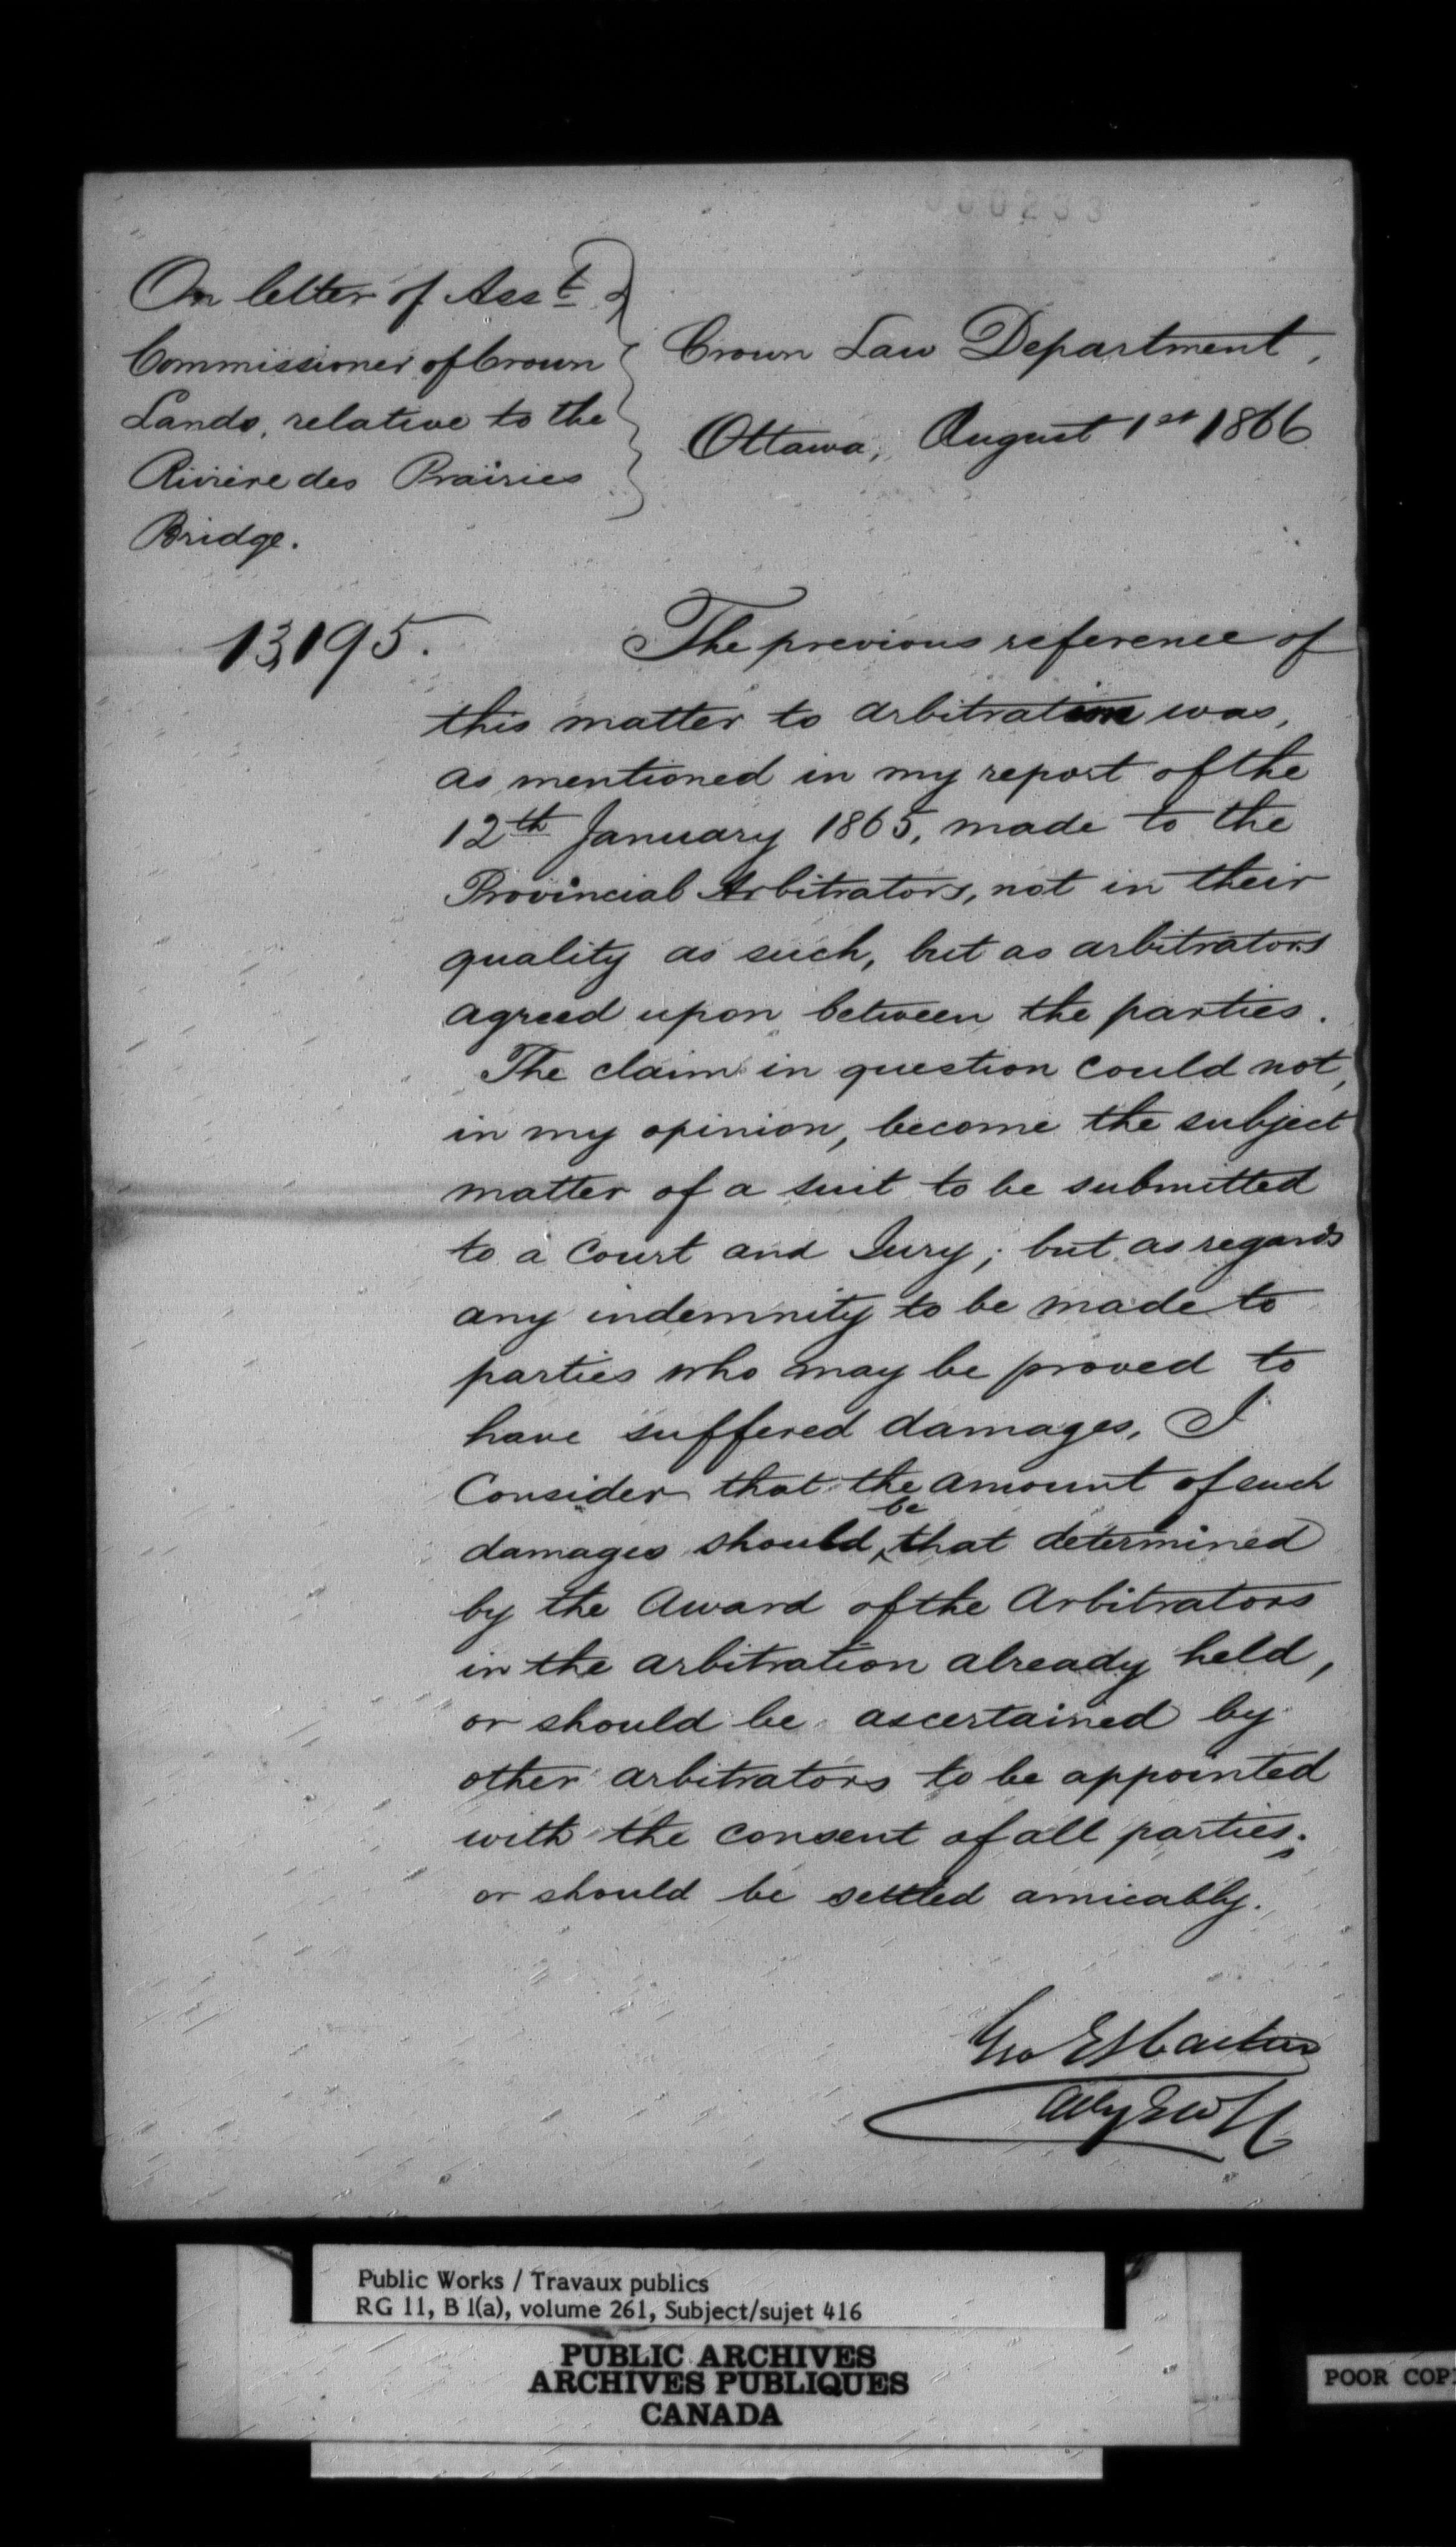 000233
On letter of Asst
Commissioner of Crown
Lands, relative to the
Rivière des Prairies
Bridge.
Crown Law Department,
Ottawa, August 1st 1866
13,195.
The previous reference of
this matter to arbitration was,
as mentioned in my report of the
12th January 1865, made to the
Provincial Arbitrators, not in their
quality as such, but as arbitrators
agreed upon between the parties.
The claim in question could not,
in my opinion, become the subject
matter of a suit to be submitted
to a Court and Jury; but as regards
any indemnity to be made to
parties who may be proved to
have suffered damages, I
Consider that the amount of such
damages should be that determined
by the Award of the Arbitrators
in the arbitration already held,
or should be ascertained by
other arbitrators to be appointed
with the consent of all parties;
or should be settled amicably.
Geo E Cartier
Atty
Public Works / Travaux publics
RG 11, B 1(a), volume 261, Subject/sujet 416
PUBLIC ARCHIVES
ARCHIVES PUBLIQUES
CANADA
POOR COP